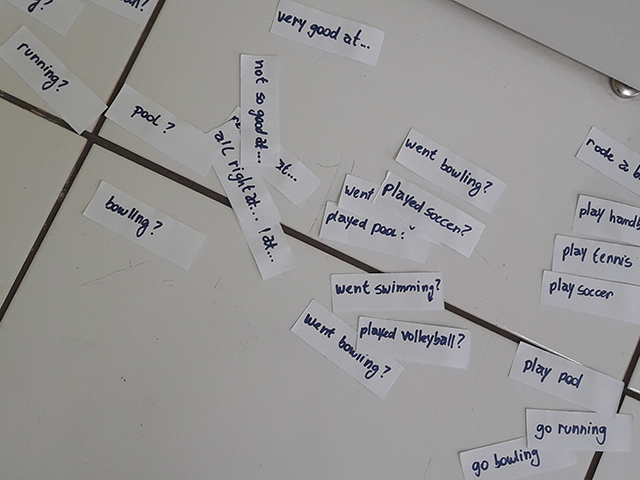 very good at...
running?
pool?
not so good at...
all right at...
at...
bowling?
went bowling?
went
played soccer?
played pool?
went swimming?
played volleyball?
went bowling?
rode a
play handb
play tennis
play soccer
play pool
go running
go bowling